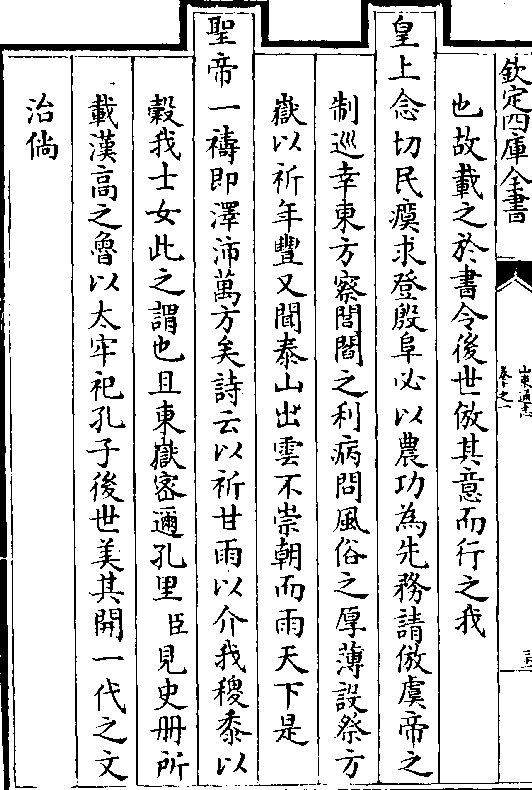 欽定四庫全書
山東通志
卷之一
也故載之於書令後世倣其意而行之我
皇上念切民瘼求登殷阜必以農功為先務請倣虞帝之
制巡幸東方察閭閻之利病問風俗之厚薄設祭方
嶽以祈年豐又聞泰山出雲不崇朝而雨天下是
聖帝一禱即澤沛萬方矣詩云以祈甘雨以介我稷黍以
穀我士女此之謂也且東嶽密邇孔里臣見史册所
載漢高之魯以太牢祀孔子後世美其開一代之文
治倘